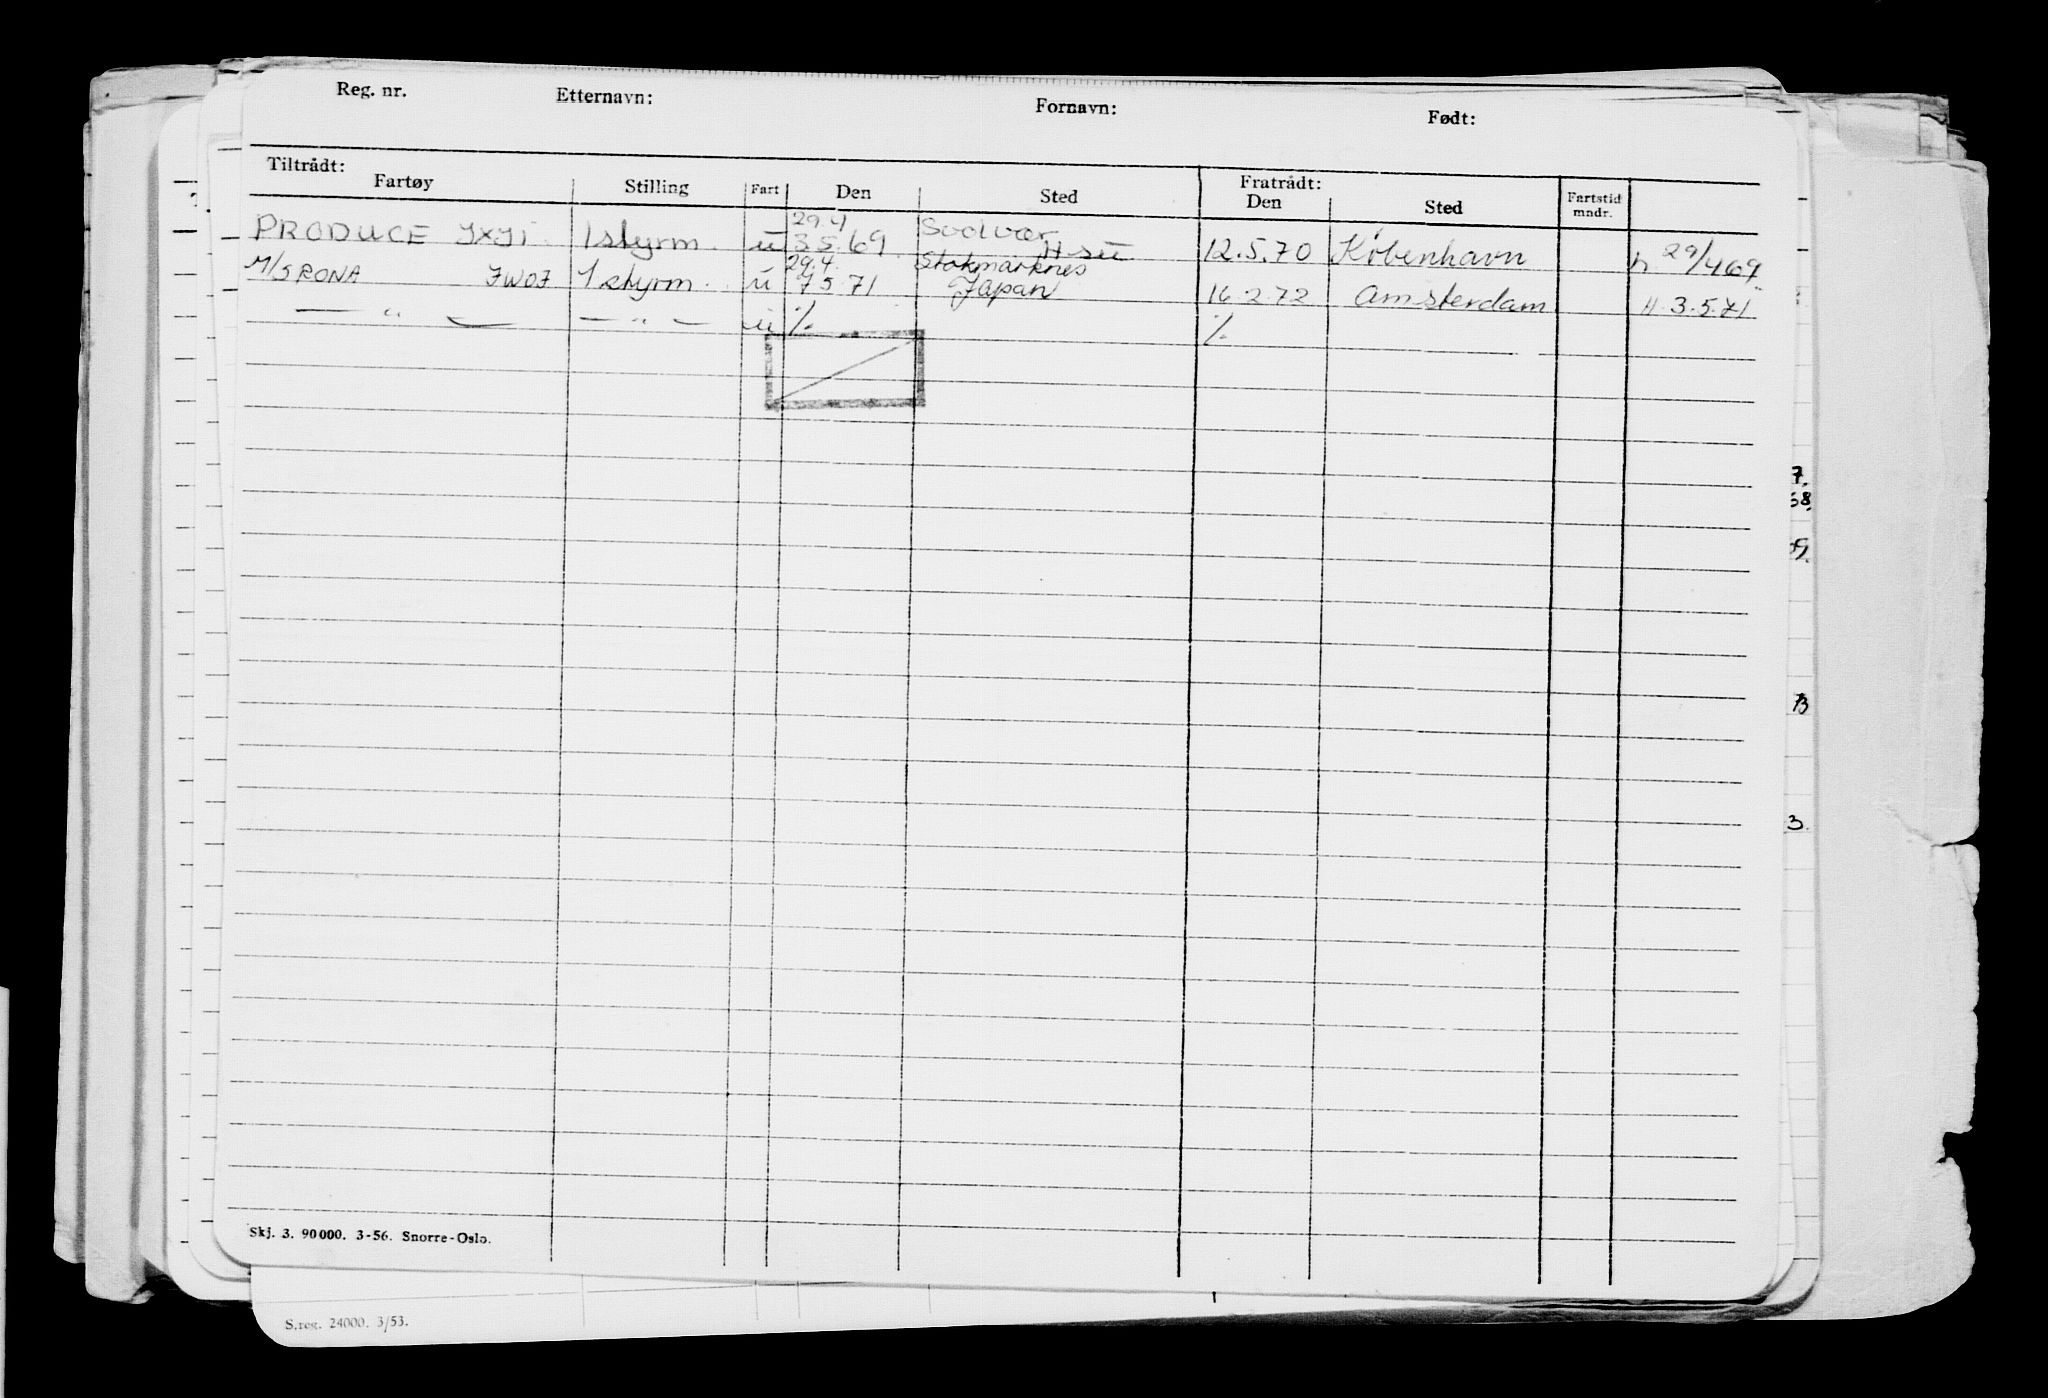 Reg. nr. Etternavn: Fornavn: Født:
Tiltrådt: Fratrådt:
Fartøy Stilling Fart Den Sted Den Sted Fartstid mndr.
29.4 Svolvær
PRODUCE JXJI. 1 styrm. u 3.5.69. 12.5.70 København h 29/4 69
29.4. Stokmarknes
M/S RONA JWOJ 1 styrm. u 7.5.71 Japan 16.2.72 Amsterdam H. 3.5.71
— " — — " — u ./. ./.
7.
68,
69.
B
3.
Skj. 3. 90000. 3-56. Snorre-Oslo.
S.reg. 24000. 3/53.